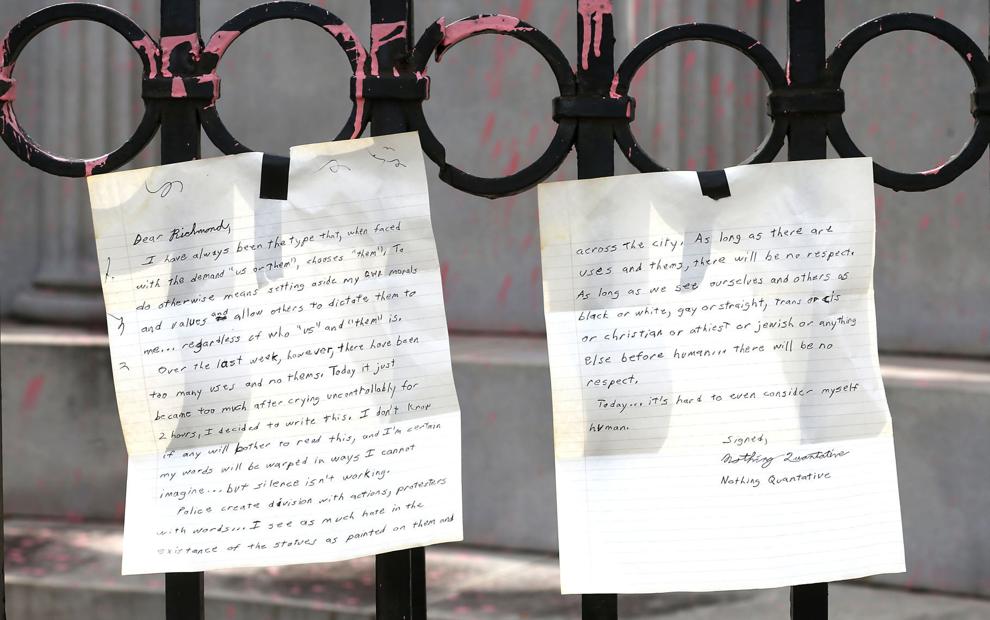 Dear Richmond,
I have always been the type that, when faced
with the demand "us or them", chooses "them". To
do otherwise means setting aside my own morals
and values and allow others to dictate them to
me... regardless of who "us" and "them" is.
Over the last week, however, there have been
too many uses and no thems. Today it just
became too much after crying uncontrollably for
2 hours, I decided to write this. I don't know
if any will bother to read this, and I'm certain
my words will be warped in ways I cannot
imagine... but silence isn't working.
Police create division with actions, protesters
with words... I see as much hate in the
existance of the statues as painted on them and
across the city. As long as there are
uses and thems, there will be no respect.
As long as we see ourselves and others as
black or white, gay or straight, trans or cis
or christian or athiest or jewish or anything
else before human... there will be no
respect.
Today... it's hard to even consider myself
human.
Signed,
Nothing Quantative
Nothing Quantative